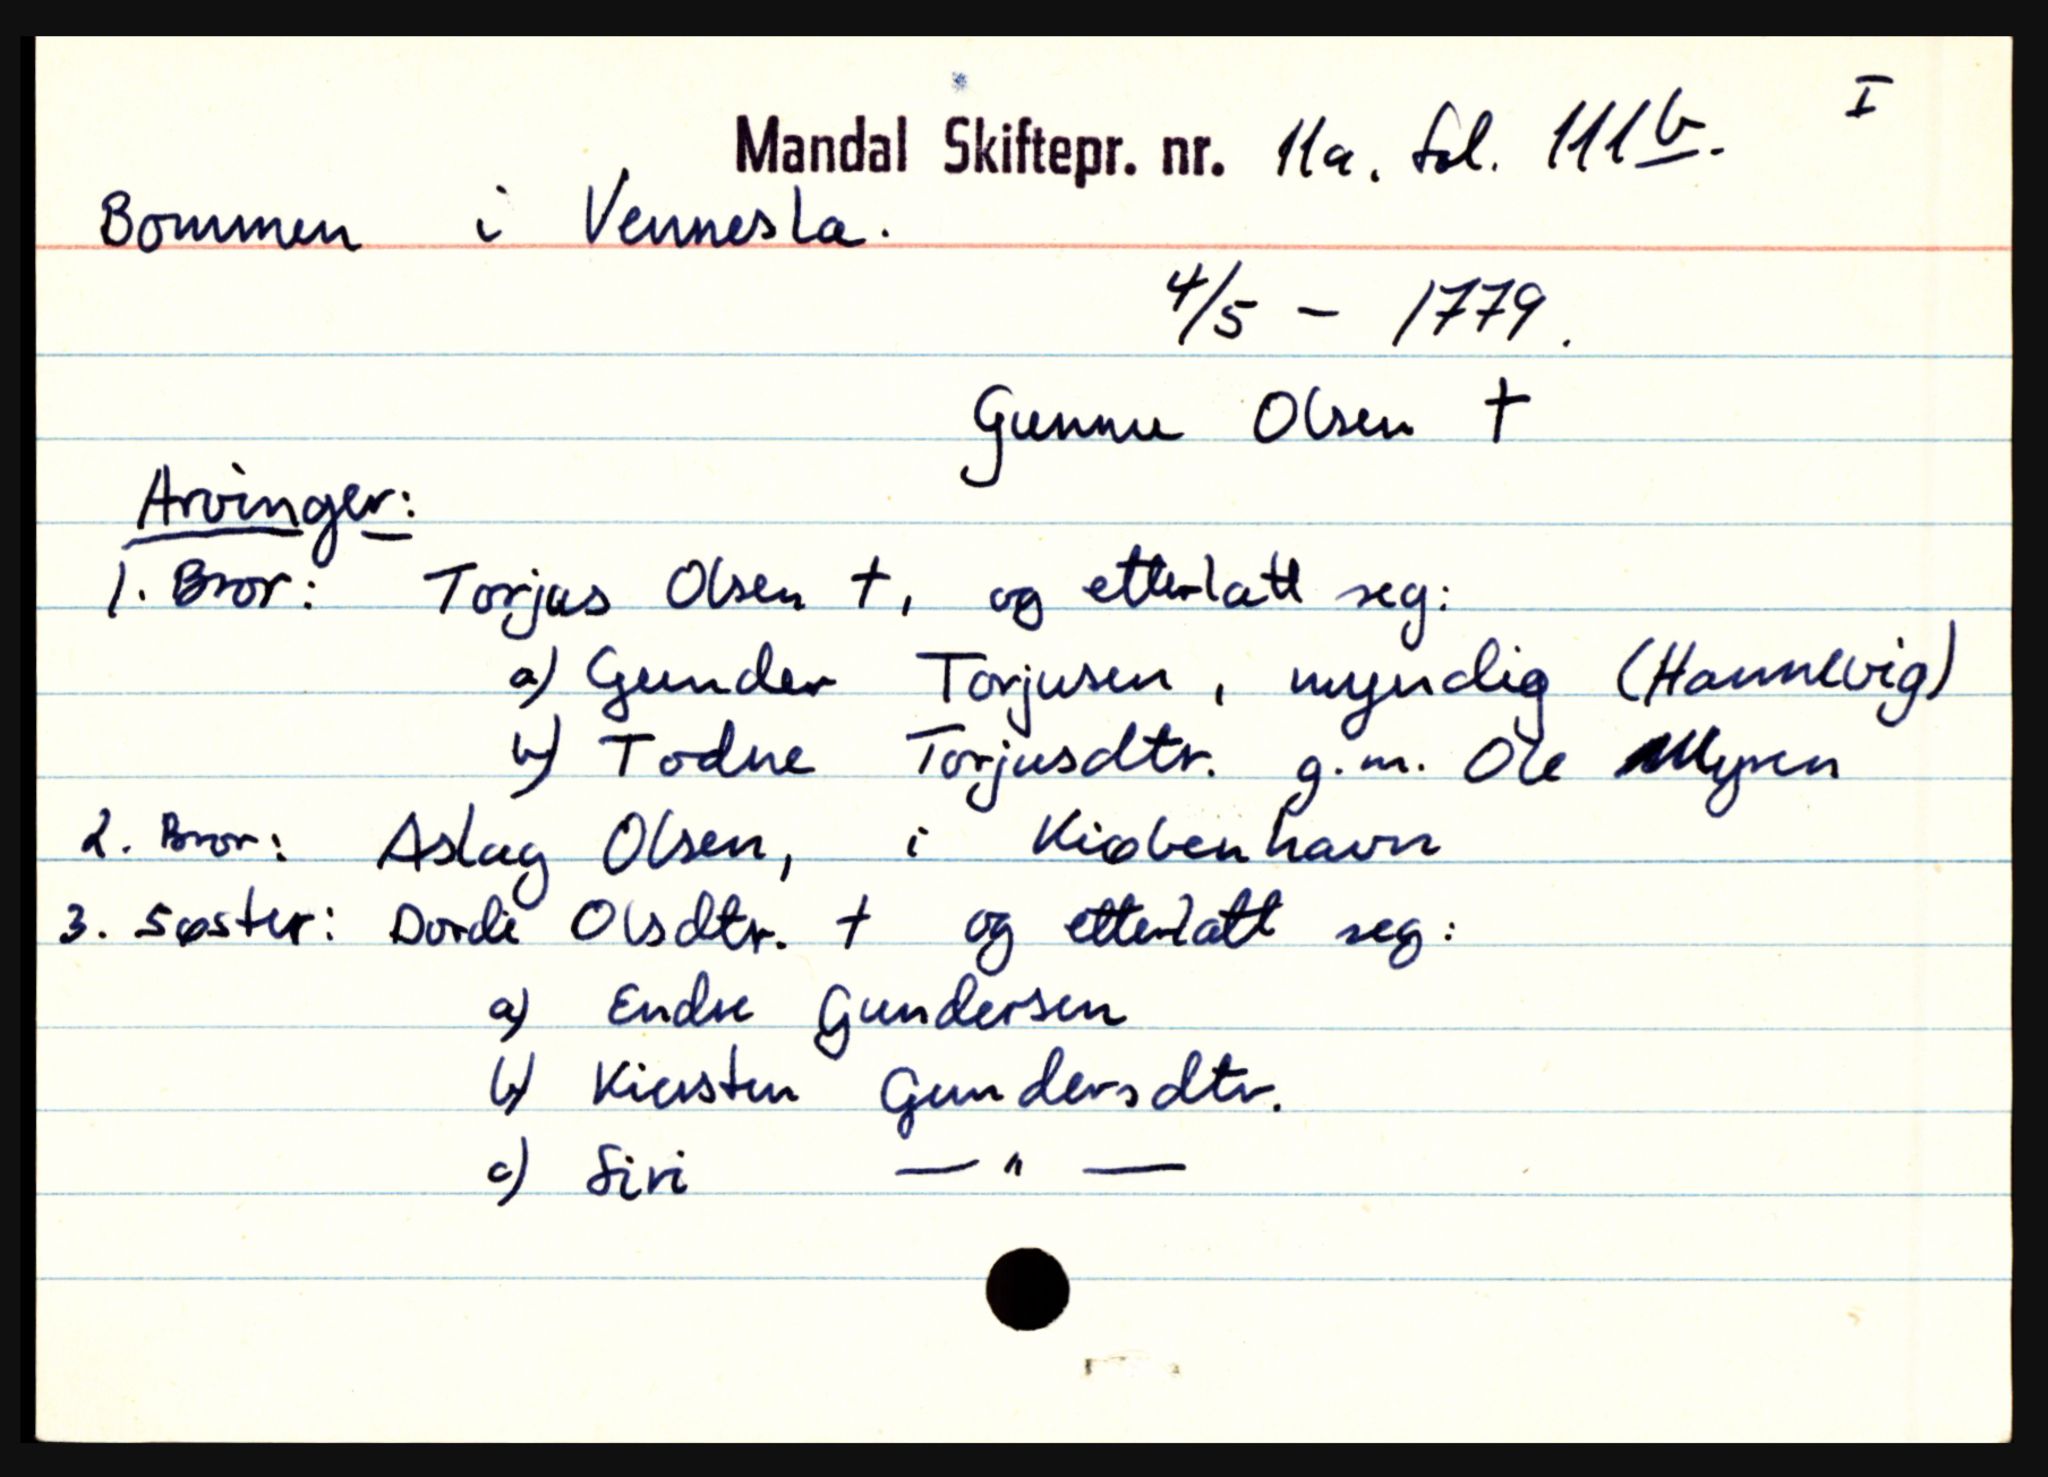 I
Mandal Skiftepr. nr. 11a. fol. 111b.
Bommen i Vennesla.
4/5 - 1779.
Gunnu Olsen †
Arvinger:
1. Bror: Torjus Olsen †, og etterlatt seg:
a) Gunder Torjusen, myndig (Hannevig)
b) Todne Torjusdtr. g.m. Ole Myren
2. Bror: Aslag Olsen, i Kiøbenhavn
3. Søster: Dordi Olsdtr. † og etterlatt seg:
a) Endre Gundersen
b) Kiersten Gundersdtr.
c) Siri — " —